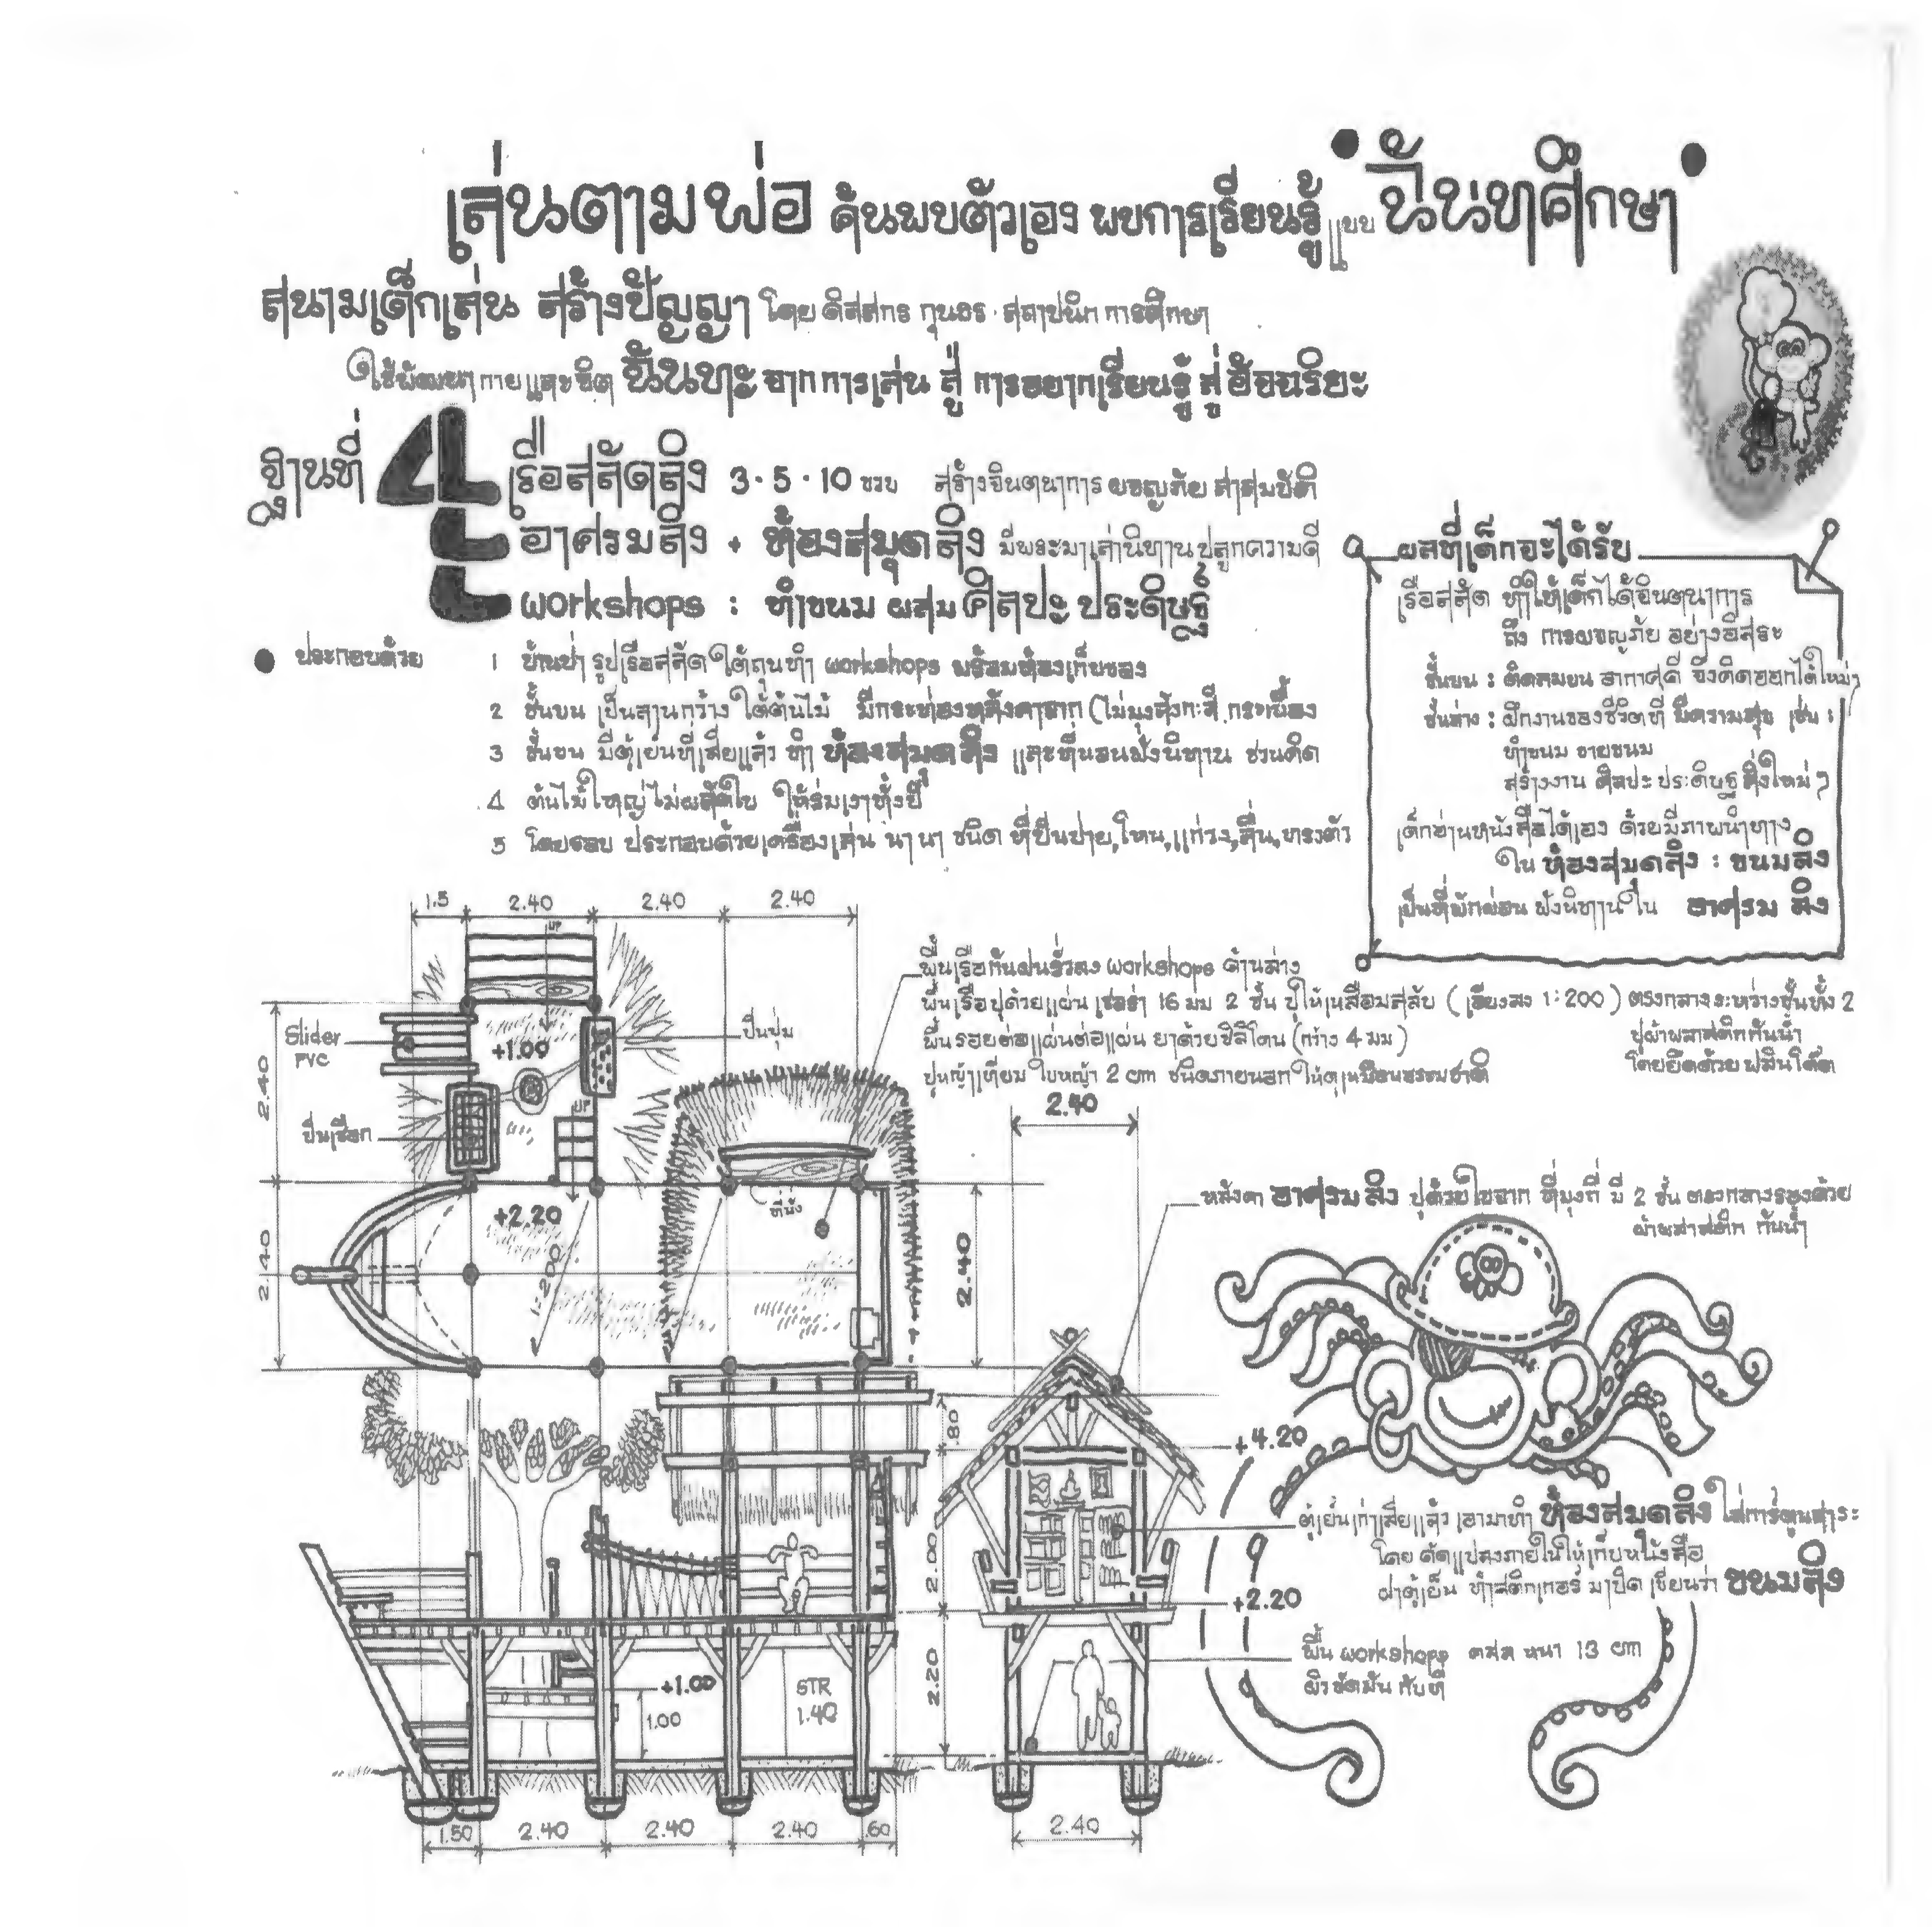 เล่นตามพ่อ ค้นพบตัวเอง พบการเรียนรู้ แบบ "ฉันทศึกษา"
สนามเด็กเล่น สร้างปัญญา โดย ดิสสกร กุนธร · สถาปนิก การศึกษา
ใช้พัฒนา กาย และ จิต ฉันทะ จากการเล่น สู่ การอยากเรียนรู้ สู่ อัจฉริยะ
ฐานที่ 4 เรือสลัดลิง 3 · 5 · 10 ขวบ สร้างจินตนาการ ผจญภัย ล่าสมบัติ
อาศรมลิง + ห้องสมุดลิง มีพระมาเล่านิทาน ปลูกความดี
workshops : ทำขนม ผสม ศิลปะ ประดิษฐ์
ประกอบด้วย
1 บ้านป่า รูปเรือสลัด ใต้ถุนทำ workshops พร้อมห้องเก็บของ
2 ชั้นบน เป็นลานกว้าง ใต้ต้นไม้ มีกระท่อมหลังคาจาก (ไม่มุงสังกะสี กระเบื้อง
3 ชั้นบน มีตู้เย็นที่เสียแล้ว ทำ ห้องสมุดลิง และที่นอนฟังนิทาน ชวนคิด
4 ต้นไม้ใหญ่ ไม่ผลัดใบ ให้ร่มเงาทั้งปี
5 โดยรอบ ประกอบด้วยเครื่องเล่น นานา ชนิด ที่ปีนป่าย, โหน, แกว่ง, ลื่น, ทรงตัว
ผลที่เด็กจะได้รับ
เรือสลัด ทำให้เด็กได้จินตนาการ
ถึง การผจญภัย อย่างอิสระ
ชั้นบน : ติดลมบน อากาศดี จึงคิดออกได้ใหม่ๆ
ชั้นล่าง : ฝึกงานของชีวิตที่ มีความสุข เช่น :
ทำขนม ขายขนม
สร้างงาน ศิลปะ ประดิษฐ์ สิ่งใหม่ ๆ
เด็กอ่านหนังสือได้เอง ด้วยมีภาพนำทาง
ใน ห้องสมุดลิง : ขนมลิง
เป็นที่พักผ่อน ฟังนิทาน ใน อาศรม ลิง
1.5 2.40 2.40 2.40
พื้นเรือกันฝนรั่วลง workshops ด้านล่าง
พื้นเรือปูด้วยแผ่น เชอร่า 16 มม 2 ชั้น ปูให้เหลื่อมสลับ (เอียงลง 1:200) ตรงกลางระหว่างชั้นทั้ง 2
ปูผ้าพลาสติกกันน้ำ
พื้นรอยต่อแผ่นต่อแผ่น ยาด้วยซิลิโคน (กว้าง 4 มม)
โดยยึดด้วย ฟลินโค้ต
ปูหญ้าเทียม ใบหญ้า 2 cm ชนิดภายนอก ให้ดูเหมือนธรรมชาติ
UP
Slider
PVC
+1.00
ปีนปุ่ม
2.40
ปีนเชือก
UP
2.40
+2.20
ที่นั่ง
1:200
2.40
2.40
หลังคา อาศรม ลิง ปูด้วยใบจาก ที่มุงถี่ มี 2 ชั้น ตรงกลางรองด้วย
ผ้าพลาสติก กันน้ำ
.80
+4.20
ตู้เย็นเก่าเสียแล้ว เอามาทำ ห้องสมุดลิง ใส่การ์ตูนสาระ
โดย ดัดแปลงภายในให้เก็บหนังสือ
ฝาตู้เย็น ทำสติกเกอร์ มาปิด เขียนว่า ขนมลิง
2.00
+2.20
พื้น workshop คสล หนา 13 cm
ผิวขัดมัน กับที่
2.20
+1.00
1.00
STR
1.40
1.50 2.40 2.40 2.40 .60
2.40